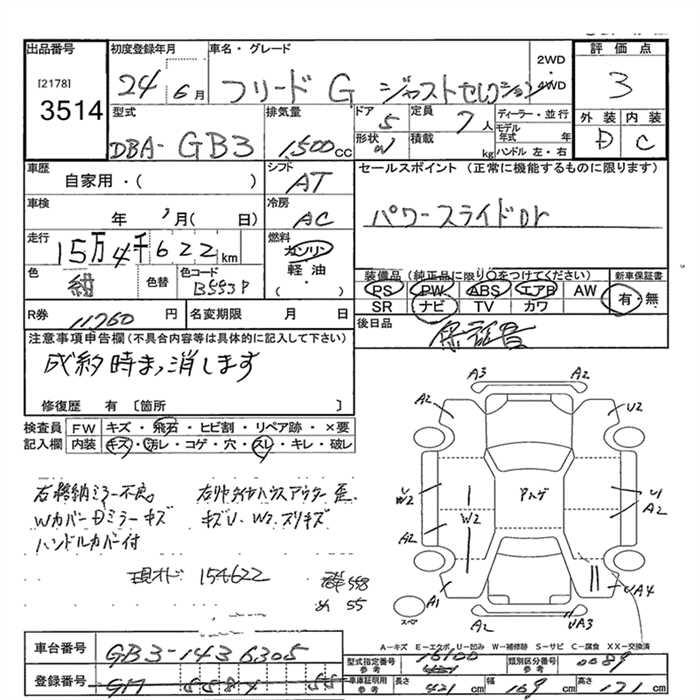 出品番号 初度登録年月 車名・グレード 2WD・4WD 評価点
[2178]
3514 24 6月 フリード G ジャストセレクション 3
型式 排気量 ドア 定員 ディーラー・並行 外装 内装
DBA- GB3 1,500cc 5 7人 モデル年式 年 D C
形状 積載 kg ハンドル 左・右
車歴 シフト セールスポイント (正常に機能するものに限ります)
自家用・( ) AT
車検 冷房 パワースライドDr
年 月( 日) AC
走行 燃料
15万4千622km ガソリン
軽油・( )
色 色替 色コード 装備品(純正品に限り○をつけてください) 新車保証書
紺 B593P PS PW ABS エアB AW 有・無
SR ナビ TV カワ
R券 11760円 名変期限 月 日 後日品
保証書
注意事項申告欄(不具合内容等は具体的に記入して下さい)
成約時まっ消します
修復歴 有 〔箇所 〕
検査員 FW キズ・飛石・ヒビ割・リペア跡・×要
記入欄 内装 キズ・汚レ・コゲ・穴・スレ・キレ・破レ
右格納ミラー不良
WカバーDミラーキズ キズU. W2. スリキズ
ハンドルカバー付
現オド 154622
55
A3 A2
A2 U2
U W2 W2 U1 A2
A2
A1 UA4
スペア A2 UA3
A-キズ E-エクボ U-凹み W-補修跡 S-サビ C-腐食 XX-交換済
車台番号 GB3-1436305 型式指定番号 参考 16100 類別区分番号 参考 0089
登録番号 車庫証明用 参考 長さ 421cm 幅 169cm 高さ 171cm